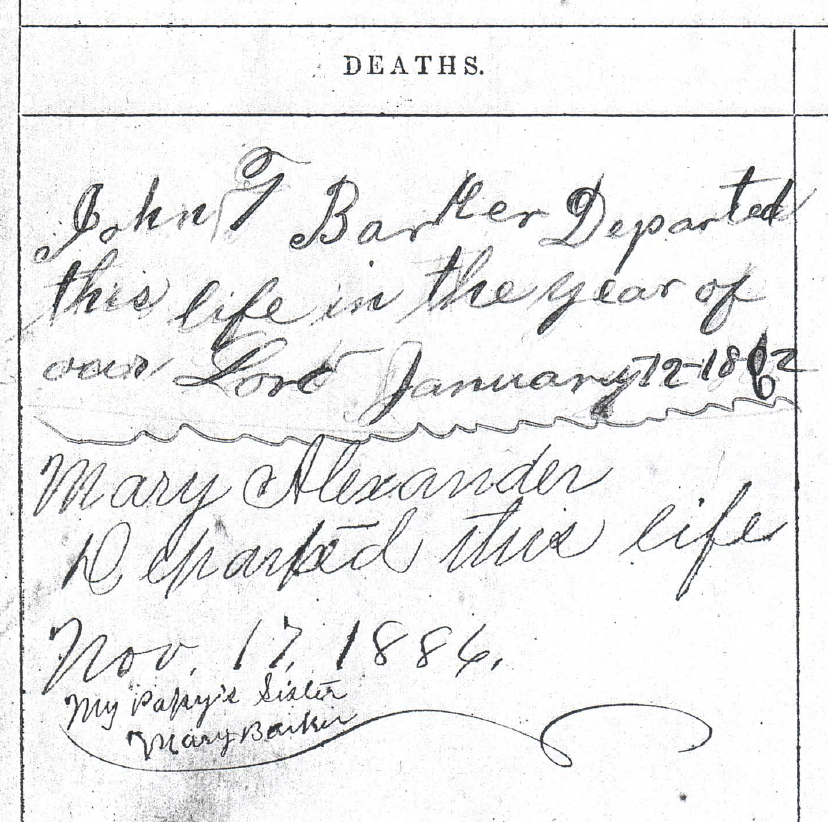 DEATHS.
John T Barker Departed
this life in the year of
our Lord January 12-1862
Mary Alexander
Departed this life
Nov. 17, 1886.
My Papy's Sister
Mary Barker